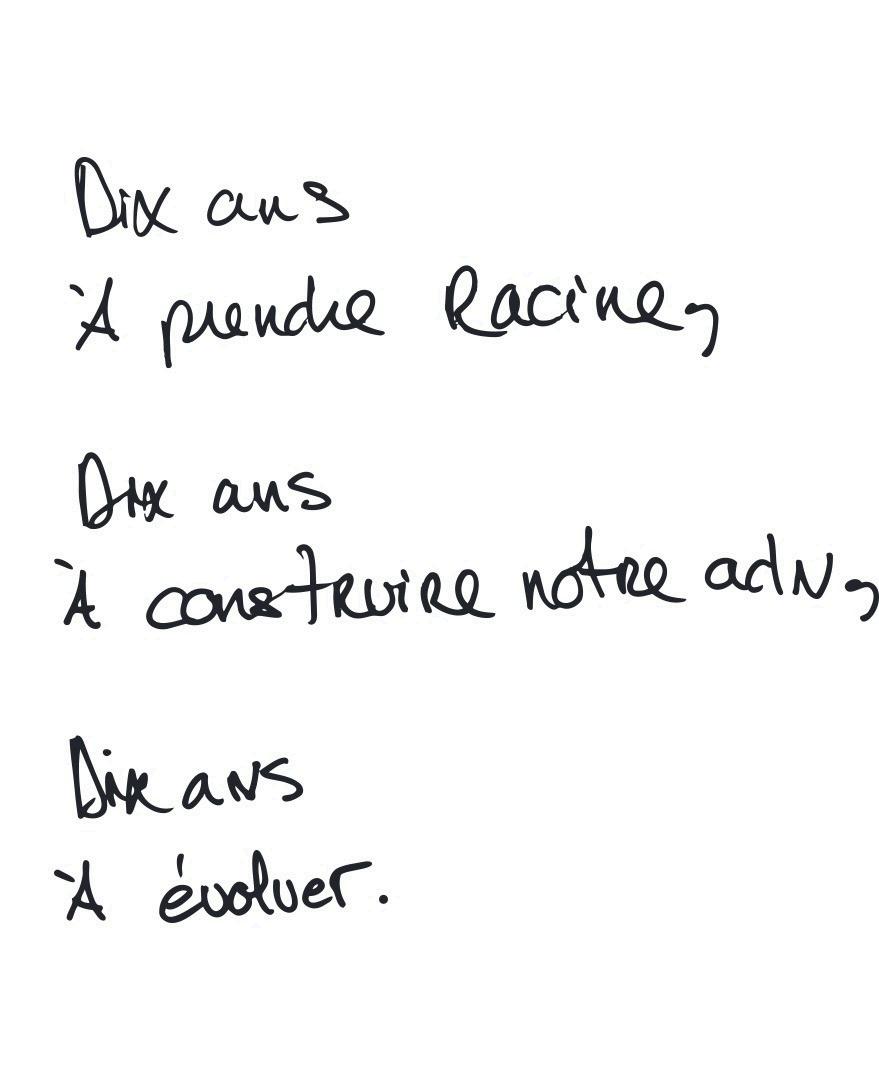 Dix ans
À prendre Racine,
Dix ans
À construire notre adn,
Dix ans
À évoluer.